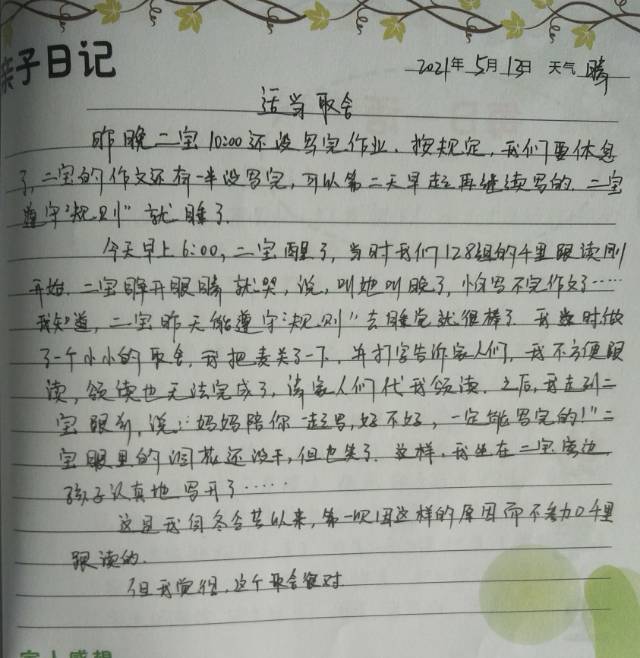 亲子日记
2021年5月13日 天气 晴
适当取舍
昨晚二宝10:00还没写完作业。按规定，我们要休息
了，二宝的作文还有一半没写完，可以第二天早起再继续写的。二宝
遵守"规则"就睡了。
今天早上6:00，二宝醒了，当时我们128组的千里跟读刚
开始。二宝睁开眼睛就哭，说，叫她叫晚了，怕写不完作文了……
我知道，二宝昨天能遵守"规则"去睡觉就很棒了。我及时做
了一个小小的取舍，我把麦关了一下，并打字告诉家人们，我不方便跟
读，领读也无法完成了，请家人们代我领读。之后，我走到二
宝跟前，说："妈妈陪你一起写，好不好，一定能写完的！"二
宝眼里的泪花还没干，但也笑了。这样，我坐在二宝旁边，
孩子认真地写开了……
这是我自冬令营以来，第一次因这样的原因而不参加千里
跟读的。
但我觉得，这个取舍很对。
家人感想